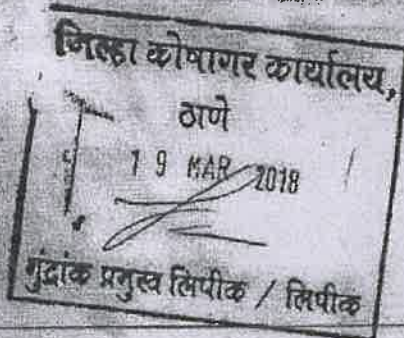 जिल्हा कोषागर कार्यालय,
ठाणे
19 MAR 2018
मुंद्रांक प्रमुख लिपीक / लिपीक